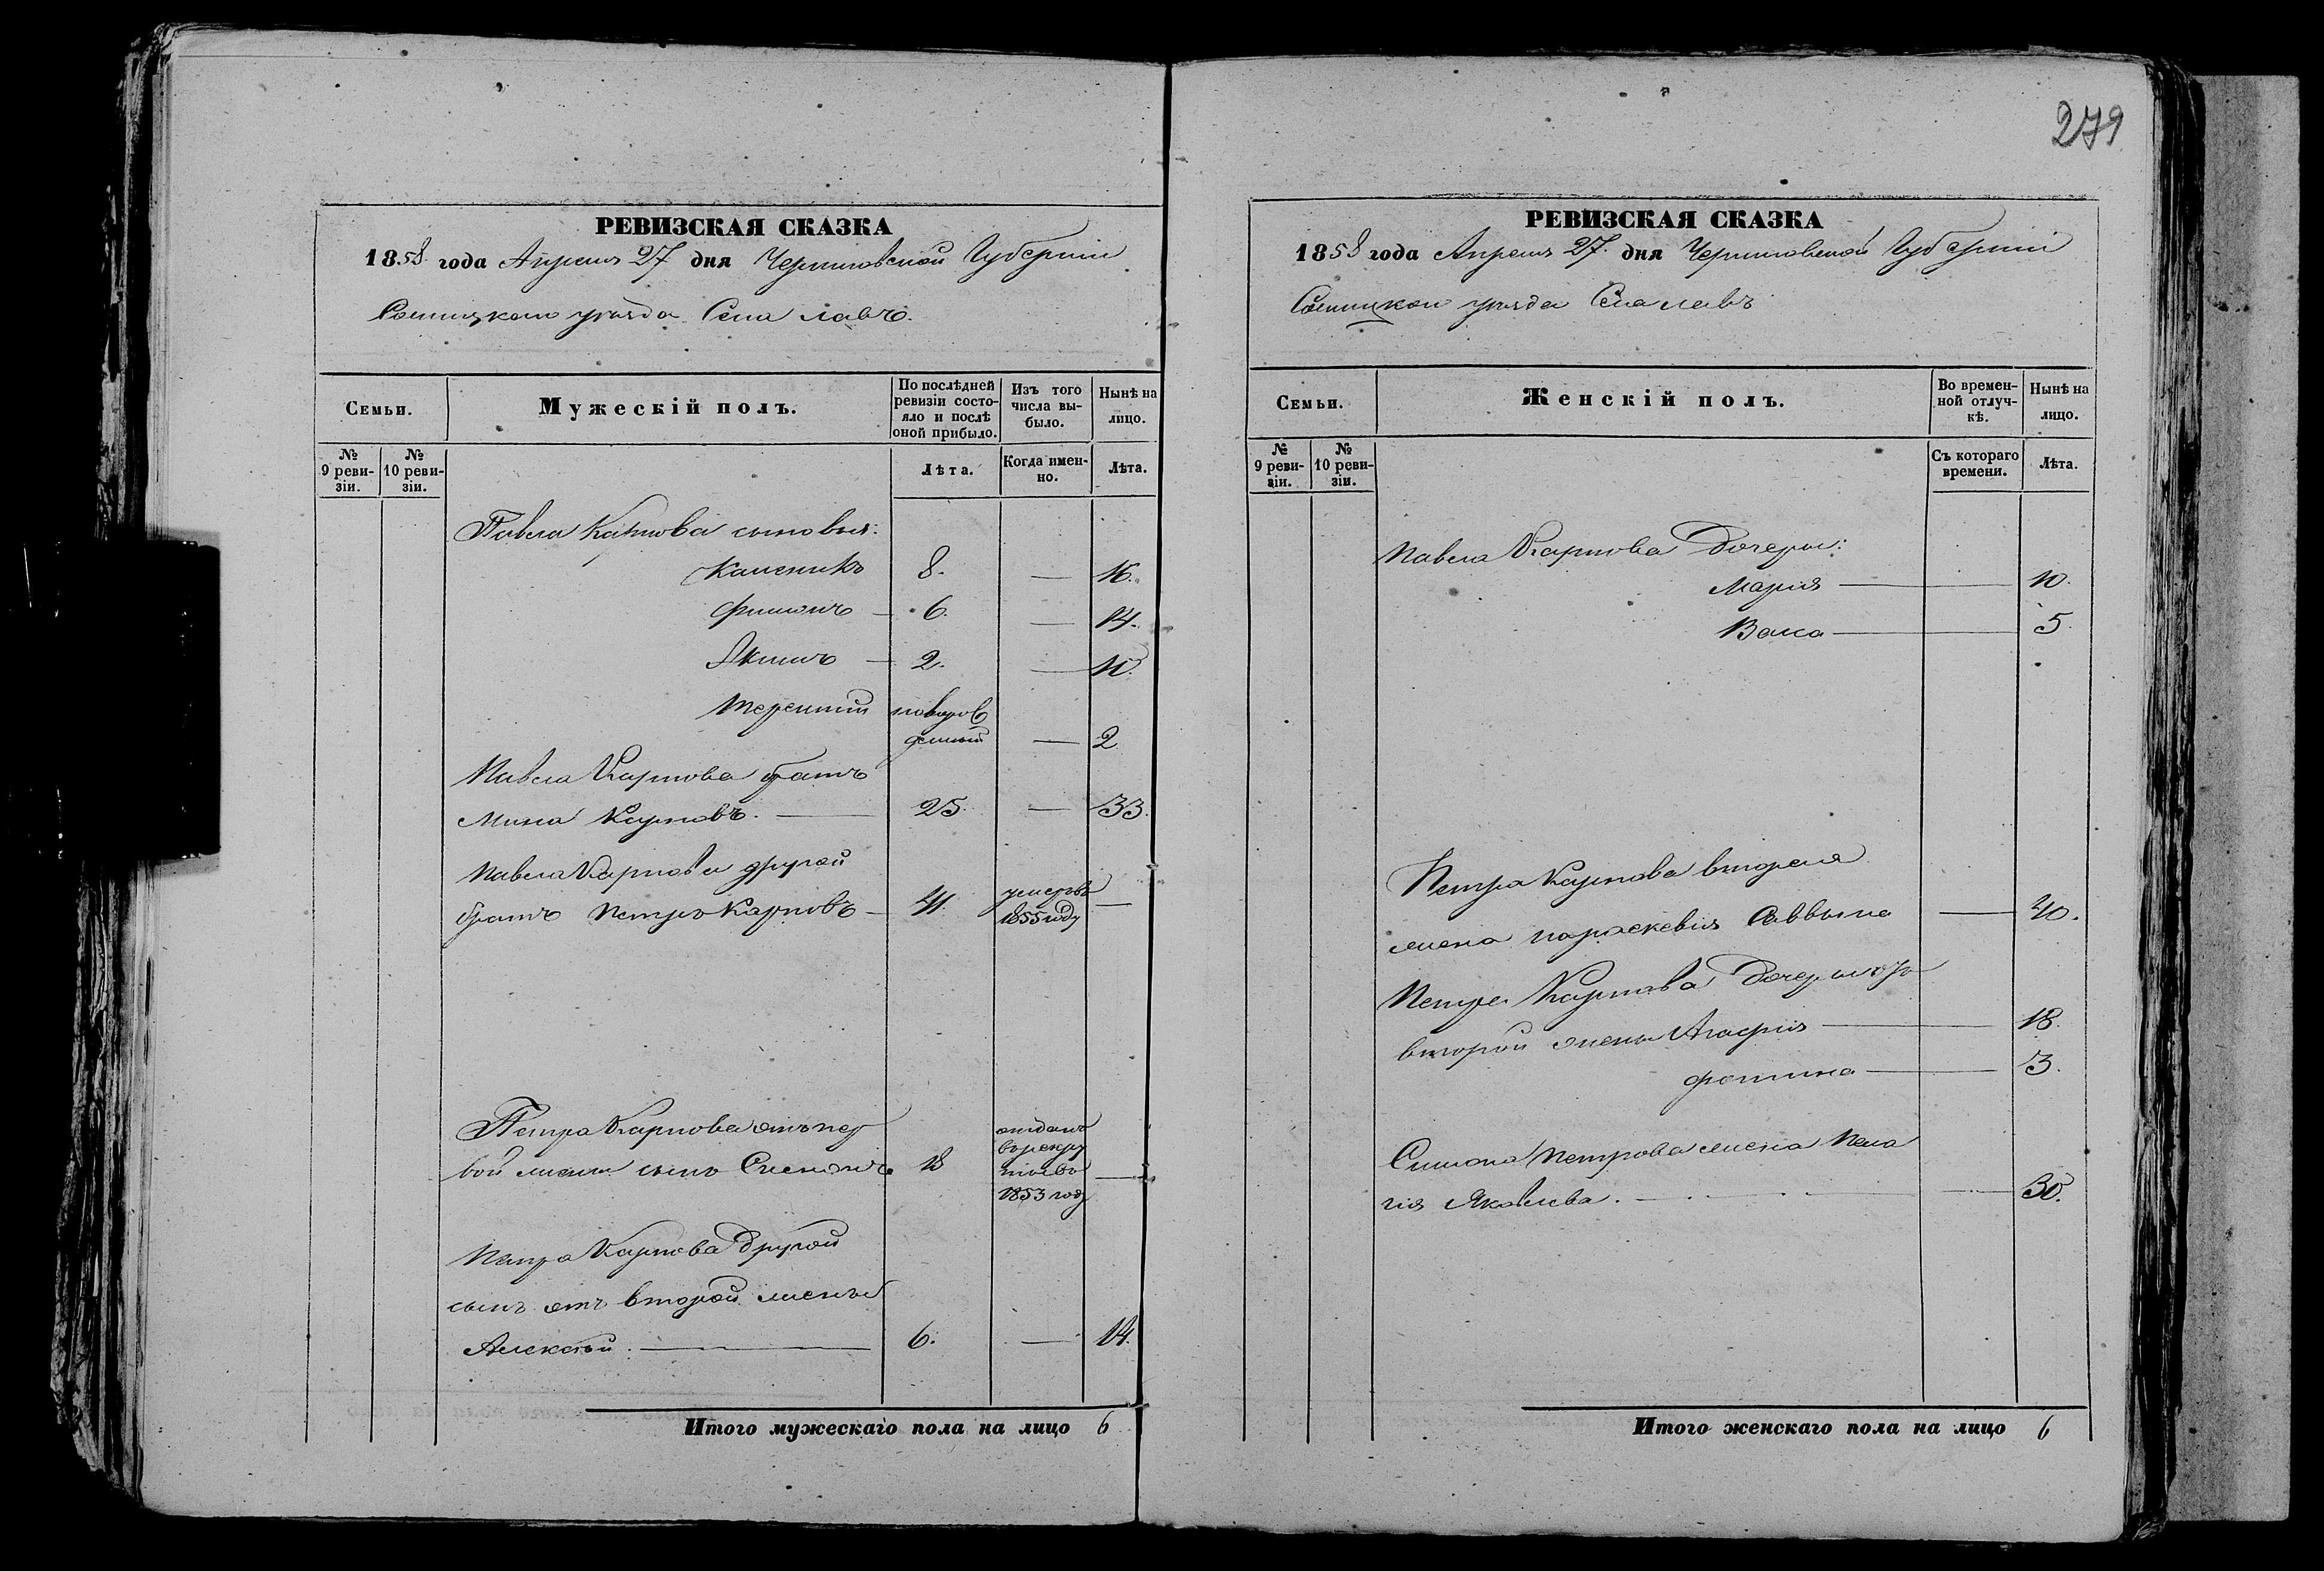 279
РЕВИЗСКАЯ СКАЗКА
1858 года Апреля 27 дня Черниговской Губернии
Сосницкого уезда Села Лавъ.
Семьи.
Мужескій полъ.
По послѣдней ревизіи состояло и послѣ оной прибыло.
Изъ того числа выбыло.
Нынѣ на лицо.
№ 9 ревизіи.
№ 10 ревизіи.
Лѣта.
Когда именно.
Лѣта.
Павла Карпова сыновья:
Каленикъ 8. — 16.
Филипъ — 6. — 14.
Якимъ — 2. — 10.
Терентий новорож
денный — 2
Павла Карпова братъ
Мина Карповъ. — 25. — 33.
Павла Карпова другой
братъ Петръ Карповъ — 41. умеръ въ 1855 году —
Петра Карпова отъ пер
вой жены сынъ Сименъ 18 отданъ въ рекрутство 1853 году —
Петра Карпова другой
сынъ отъ второй жены
Алексѣй. — 6. — 14.
Итого мужескаго пола на лицо 6
РЕВИЗСКАЯ СКАЗКА
1858 года Апреля 27. дня Черниговской Губернии
Сосницкого уезда Села Лавъ
Семьи.
Женскій полъ.
Во временной отлучкѣ.
Нынѣ на лицо.
№ 9 ревизіи.
№ 10 ревизіи.
Съ котораго времени.
Лѣта.
Павла Карпова Дочери:
Мария — 10.
Васса — 5.
Петра Карпова вторая
жена Параскевия Саввина — 40.
Петра Карпова Дочери отъ
второй жены Агафия — 18.
Фотина — 3.
Симона Петрова жена Пела
гия Яковлева. — 30.
Итого женскаго пола на лицо 6